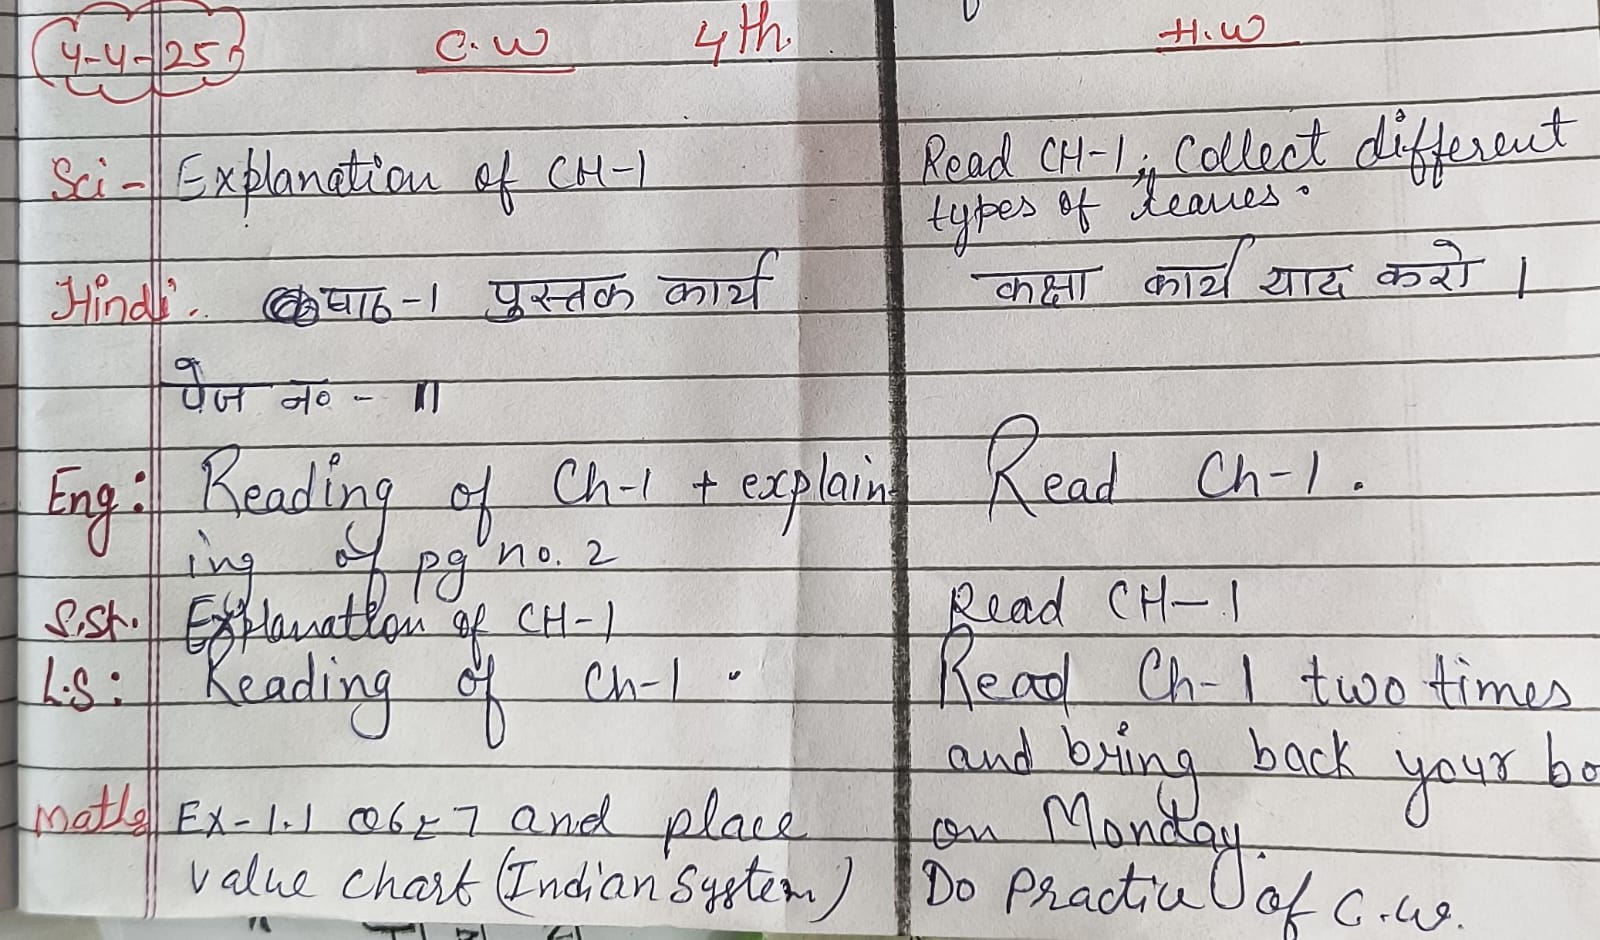 4-4-25 C.W 4th. H.W
Sci- Explanation of CH-1
Read CH-1, Collect different
types of leaves.
Hindi. पाठ-1 पुस्तक कार्य
कक्षा कार्य याद करो ।
पेज न० - 11
Eng: Reading of Ch-1 + explain-
ing of pg no. 2
Read Ch-1.
S.St. Explanation of CH-1
Read CH-1
L.S: Reading of Ch-1.
Read Ch-1 two times
and bring back your
on Monday.
Maths Ex-1.1 Q6 & 7 and place
value chart (Indian System)
Do Practice of C.W.